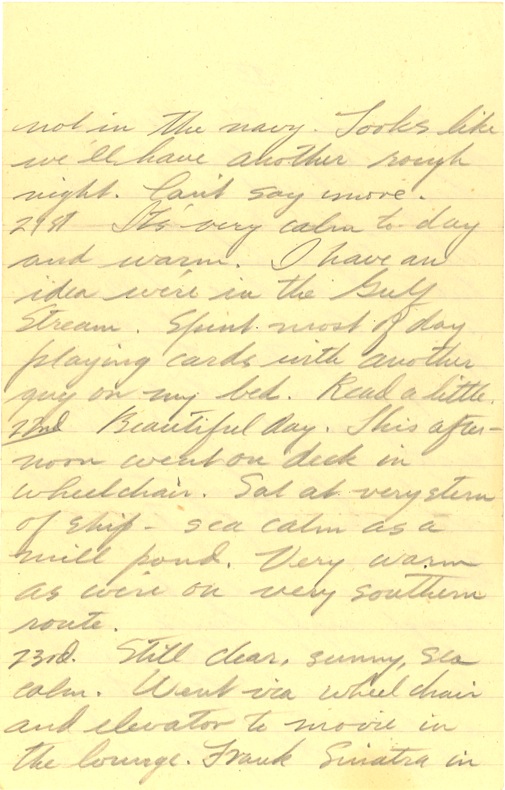 not in the navy. Looks like
we'll have another rough
night. Can't say more.
21st It's very calm to-day
and warm. I have an
idea we're in the Gulf
Stream. Spent most of day
playing cards with another
guy on my bed. Read a little.
22nd Beautiful day. This after-
noon went on deck in
wheelchair. Sat at very stern
of ship - sea calm as a
mill pond. Very warm
as we're on very southern
route.
23rd. Still clear, sunny, sea
calm. Went via wheel chair
and elevator to movie in
the lounge. Frank Sinatra in